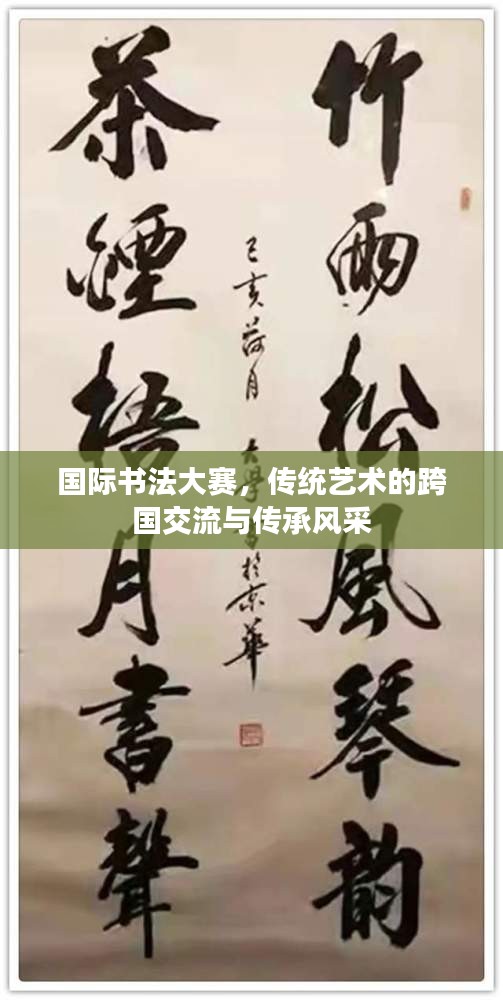 竹雨松風琴韵
茶煙梧月書聲
己亥荷月 大學
於京華
国际书法大赛，传统艺术的跨
国交流与传承风采